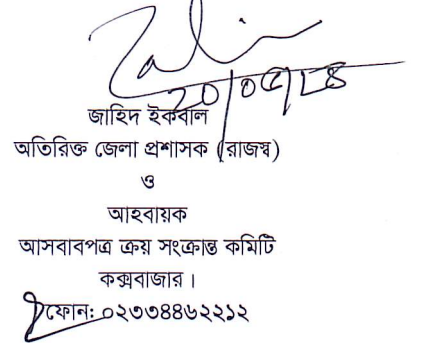 জাহিদ ইকবাল
অতিরিক্ত জেলা প্রশাসক (রাজস্ব)
ও
আহবায়ক
আসবাবপত্র ক্রয় সংক্রান্ত কমিটি
কক্সবাজার।
ফোন: ০২৩৩৪৪৬২২১২